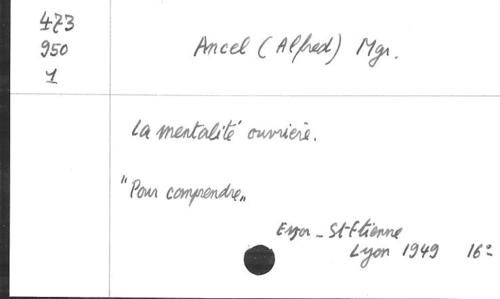 473
950
1
Ancel (Alfred) Mgr.
La mentalité ouvrière.
"Pour comprendre"
St-Etienne
Lyon 1949 16°